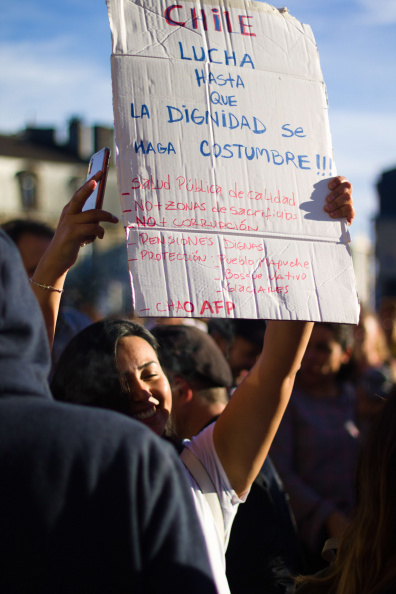 CHILE
LUCHA
HASTA
QUE
LA DIGNIDAD SE
HAGA COSTUMBRE!!!
- Salud Pública de calidad
- NO + ZONAS de sacrificios
- NO + CORRUPCIÓN
- PENSIONES DIGNAS
- PROTECCIÓN: Pueblo Mapuche
- Bosque Nativo
- GLACIARES
- CHAO AFP